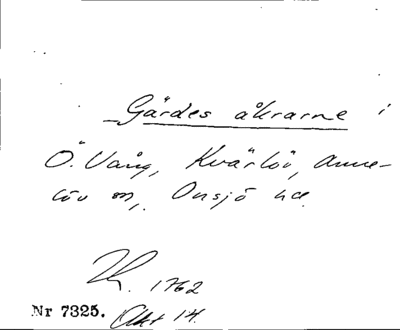 Gärdes åkrarne i
Ö. Vång, Kvärlöv, Anne-
löv sn, Onsjö hd.
1762
Nr 7325. Akt 14.